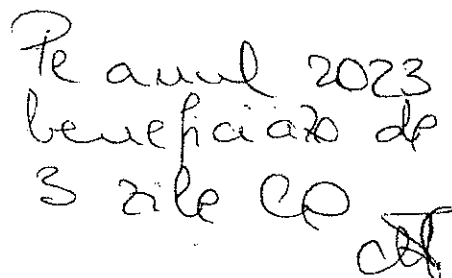 Pe anul 2023
beneficiază de
3 zile CO